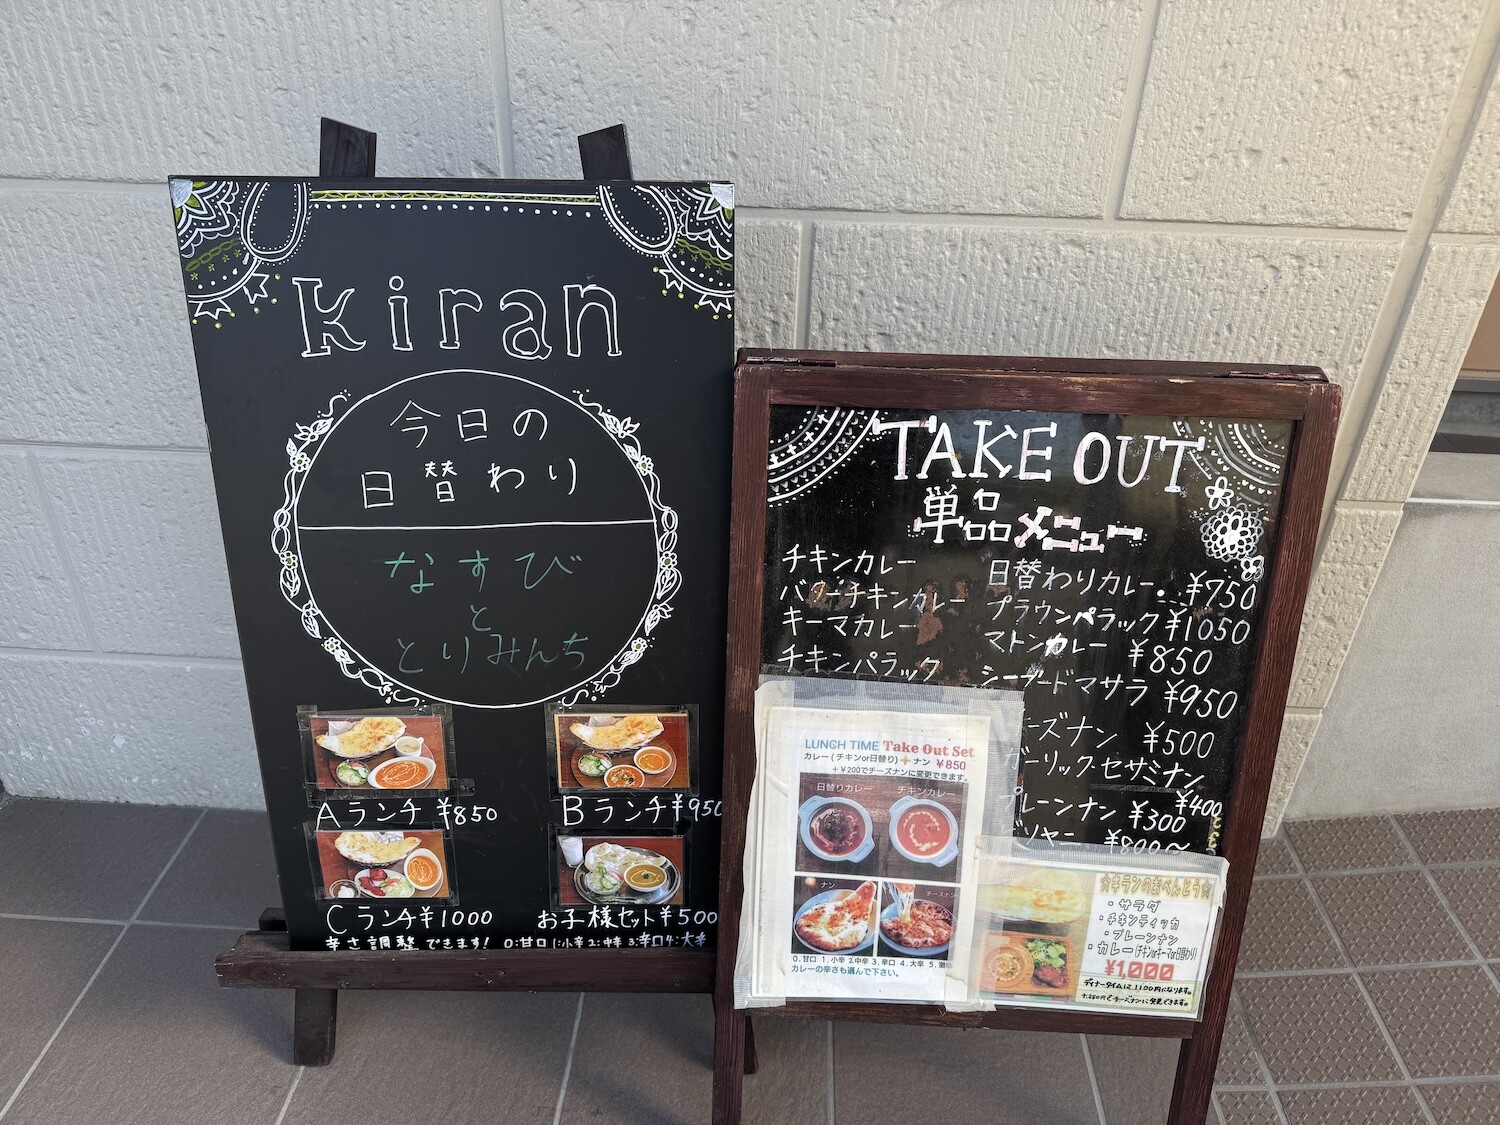 kiran
今日の
日替わり
なすび
と
とりみんち
Aランチ ¥850
Bランチ¥950
Cランチ¥1000
お子様セット¥500
辛さ調整できます! 0:甘口 1:小辛 2:中辛 3:辛口 4:大辛
TAKE OUT
単品メニュー
チキンカレー
バターチキンカレー
キーマカレー
チキンパラック
日替わりカレー ¥750
プラウンパラック ¥1050
マトンカレー ¥850
シーフードマサラ ¥950
チーズナン ¥500
ガーリックセサミナン
¥400
プレーンナン ¥300
¥800〜
LUNCH TIME Take Out Set
カレー(チキンor日替り)+ナン ¥850
+¥200でチーズナンに変更できます。
日替りカレー チキンカレー
ナン チーズナン
0.甘口 1.小辛 2.中辛 3.辛口 4.大辛 5.激
カレーの辛さも選んで下さい。
☆キランのおべんとう☆
・サラダ
・チキンティッカ
・プレーンナン
・カレー(チキンorキーマor日替わり)
¥1,000
ディナータイムは1100円になります。